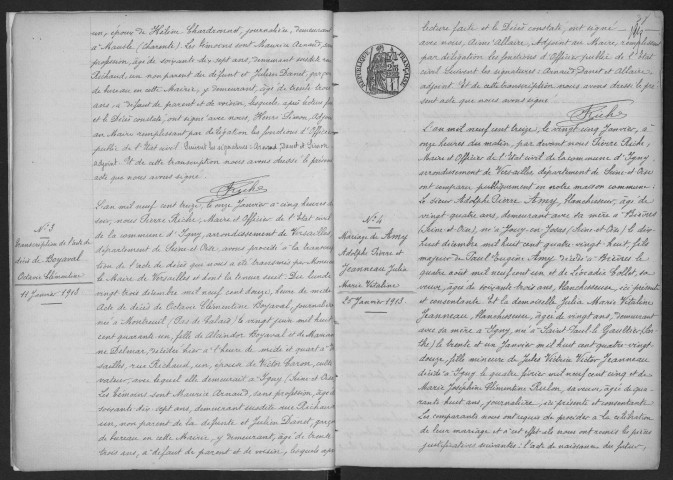 un, épouse de Hélène Chardronnet, journalière, demeurant
à Mansle (Charente). Les témoins sont Maurice Arnaud, sans
profession, âgé de soixante dix sept ans, demeurant susdite rue
Richaud, un non parent du défunt et Julien Danet, garçon
de bureau en cette Mairie, y demeurant, âgé de trente trois
ans, à défaut de parent et de voisin, lesquels après lecture faite
et le Décès constaté, ont signé avec nous, Henri Simon, Adjoint
au Maire remplissant par délégation les fonctions d'Officier
public de l'Etat civil. Suivent les signatures: Arnaud, Danet et Simon
adjoint. Et de cette transcription nous avons dressé le présent
acte que nous avons signé.
Riché
N° 3
Transcription de l'acte de
décès de Boyaval
Octavie Clémentine
11 Janvier 1913
L'an mil neuf cent treize, le onze Janvier à cinq heures du
soir, nous Pierre Riché, Maire et Officier de l'Etat civil
de la commune d'Igny, arrondissement de Versailles
département de Seine et Oise, avons procédé à la transcrip-
tion de l'acte de décès qui nous a été transmis par Monsieur
le Maire de Versailles et dont la teneur suit: Du lundi
vingt trois décembre mil neuf cent douze, heure de midi
Acte de décès de Octavie Clémentine Boyaval, journalière
née à Montreuil (Pas de Calais) le vingt juin mil huit
cent quarante un, fille de Alexandre Boyaval et de Marianne
Delmar, décédée hier à l'heure de midi et quart à Ver-
sailles, rue Richaud, un, épouse de Victor Caron, culti-
vateur, avec lequel elle demeurait à Igny (Seine et Oise)
Les témoins sont Maurice Arnaud, sans profession, âgé de
soixante dix sept ans, demeurant susdite rue Richaud
un, non parent de la défunte et Julien Danet, garçon
de bureau en cette Mairie, y demeurant, âgé de trente
trois ans, à défaut de parent et de voisin, lesquels après
lecture faite et le Décès constaté, ont signé
avec nous, Aimé Allaire, Adjoint au Maire, remplissant
par délégation les fonctions d'Officier public de l'Etat
civil. Suivent les signatures: Arnaud, Danet et Allaire
adjoint. Et de cette transcription nous avons dressé le pré-
sent acte que nous avons signé.
Riché
REPUBLIQUE FRANÇAISE
N° 4
Mariage de Amy
Adolphe Pierre et
Jeanneau Julia
Marie Vitaline
25 Janvier 1913
L'an mil neuf cent treize, le vingt cinq Janvier, à
onze heures du matin, par devant nous Pierre Riché,
Maire et Officier de l'Etat civil de la commune d'Igny
arrondissement de Versailles département de Seine et Oise
ont comparu publiquement en notre maison commune:
le sieur Adolphe Pierre Amy, blanchisseur, âgé de
vingt quatre ans, demeurant avec sa mère à Bièvres
(Seine et Oise), né à Jouy en Josas (Seine et Oise) le dix
huit décembre mil huit cent quatre vingt huit, fils
majeur de Paul Eugène Amy décédé à Bièvres le
quatre août mil neuf cent un et de Léocadie Collot, sa
veuve, âgée de soixante trois ans, blanchisseuse, ici présente
et consentante. Et la demoiselle Julia Marie Vitaline
Jeanneau, blanchisseuse, âgée de vingt ans, demeurant
avec sa mère à Igny, née à Saint Paul le Gaultier (Sar-
the) le trente et un Janvier mil huit cent quatre-vingt
douze, fille mineure de Jules Victrice Victor Jeanneau
décédé à Igny le quatre février mil neuf cent cinq et de
Marie Joséphine Clémentine Rulon, sa veuve, âgée de qua-
rante huit ans, journalière, ici présente et consentante
Les comparants nous ont requis de procéder à la célébration
de leur mariage et à cet effet ils nous ont remis les pièces
justificatives suivantes: l'acte de naissance du futur,